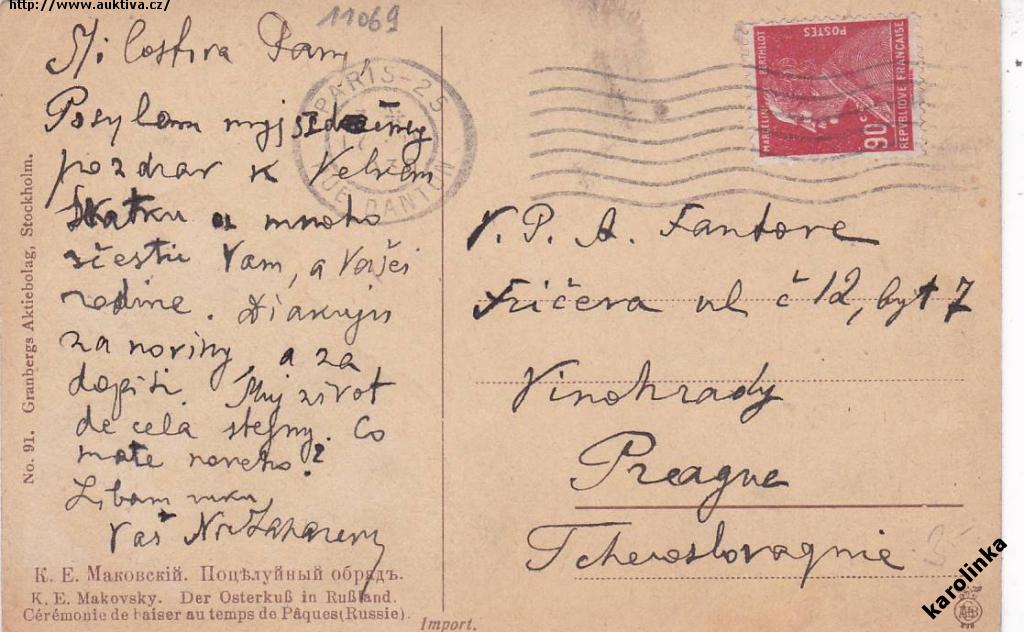 http://www.auktiva.cz/
11069
Milostiva Pany,
Posylam myj srdečny
pozdrav k Velkem
Svatku a mnoho
sčestii Vam, a Vašei
rodine. Diakuju
za noviny, a za
dopisi. Muj zivot
de cela stejny. Co
mate noveho?
Libam ruku,
Vaš
PARIS-25
RUE DANTON
MARCELIN BERTHELOT
POSTES
90c
REPUBLIQUE FRANÇAISE
V. P. A. Fantove
Fričera ul č 12, byt 7
Vinohrady
Preague
Tcheuoslovaqnie
No. 91. Granbergs Aktiebolag, Stockholm.
К. Е. Маковскiй. Поцѣлуйный обрядъ.
K. E. Makovsky. Der Osterkuß in Rußland.
Cérémonie de baiser au temps de Pâques (Russie).
Import.
karolinka